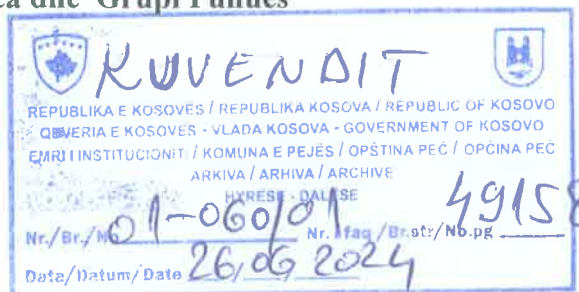 dhe Grupi Punues
KUVENDIT
REPUBLIKA E KOSOVËS / REPUBLIKA KOSOVA / REPUBLIC OF KOSOVO
QEVERIA E KOSOVËS - VLADA KOSOVA - GOVERNMENT OF KOSOVO
EMRI I INSTITUCIONIT / KOMUNA E PEJËS / OPŠTINA PEĆ / OPĆINA PEĆ
ARKIVA / ARHIVA / ARCHIVE
HYRËSE - DALËSE
Nr./Br./No 01-060/01 Nr. faq/Br.str/No.pg 4915
Data/Datum/Date 26,06 2024